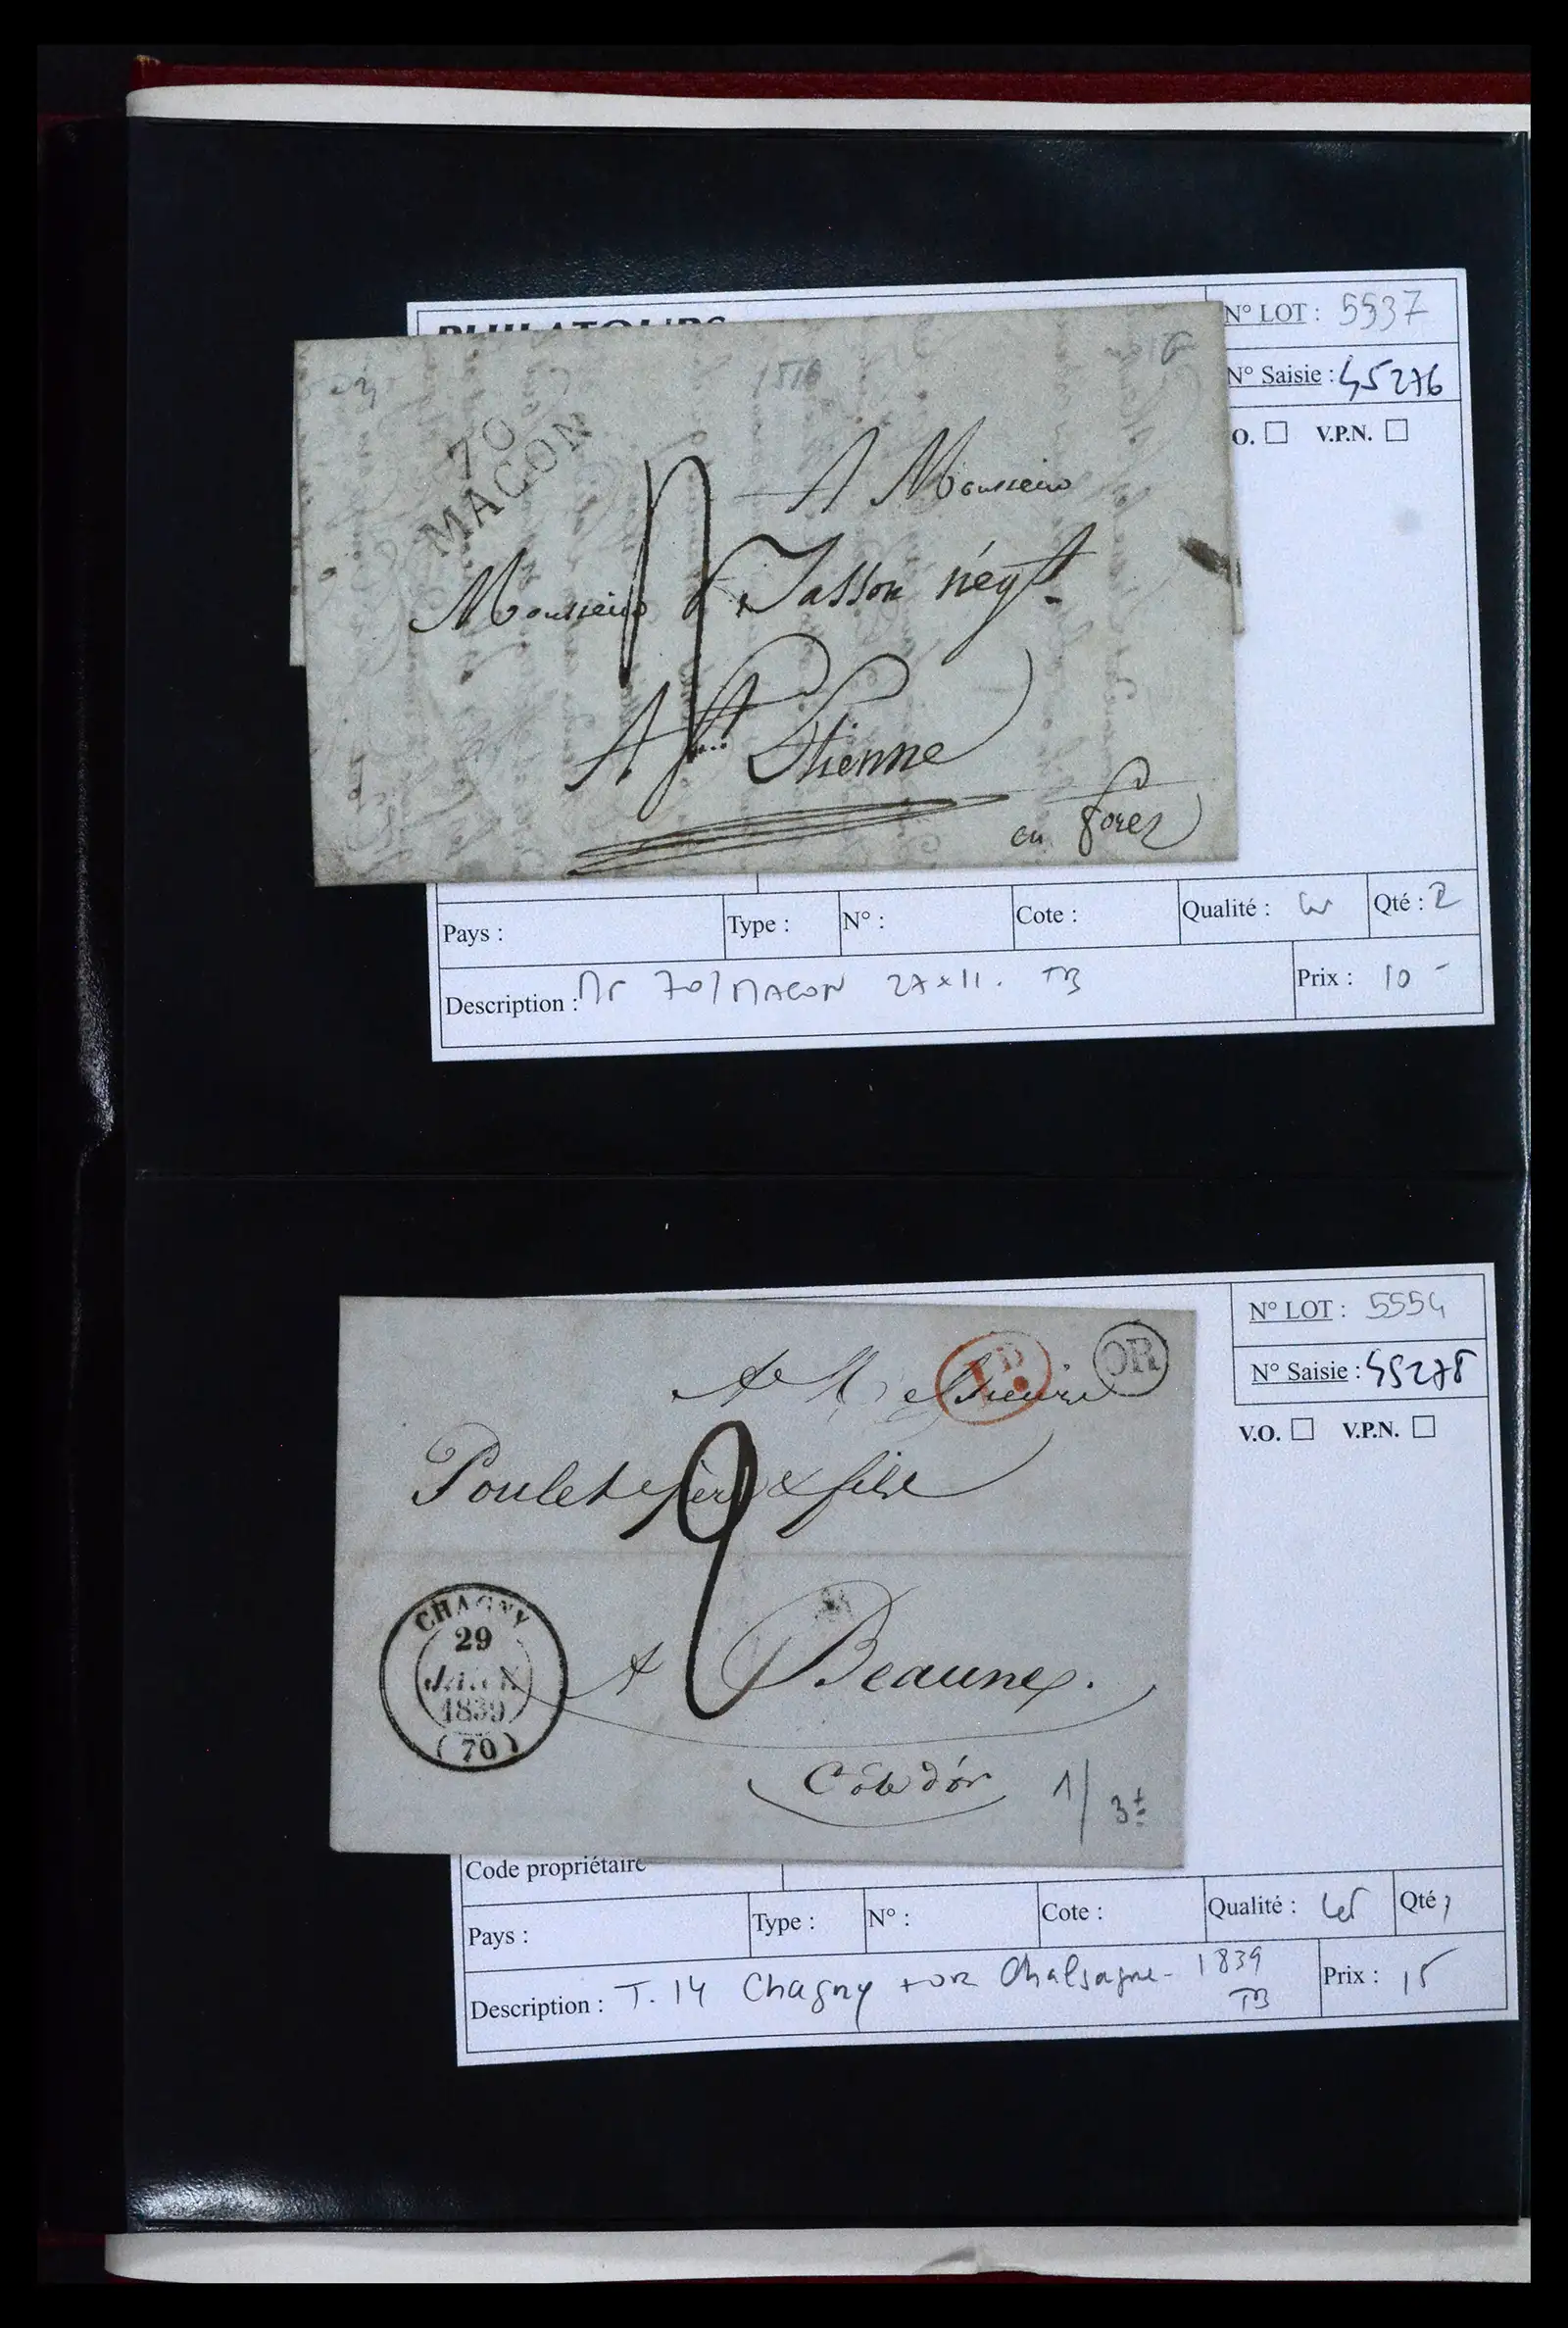 N° LOT : 5537
N° Saisie : 45276
O. V.P.N.
1816
70
MACON
A Monsieur
Monsieur Jasson négt.
A St Etienne
en forez
Pays : Type : N° : Cote : Qualité : Qté : 2
Description : 70/MACON 27x11. TB Prix : 10 -
N° LOT : 5554
N° Saisie : 45275
V.O. V.P.N.
OR
A Messieurs
Poulet père & fils
2
CHAGNY
29
JANV
1839
(70)
A Beaune.
Côte d'or
1/ 3
Code propriétaire
Pays : Type : N° : Cote : Qualité : Qté 1
Description : T. 14 Chagny + OR 1839 Prix : 15
TB